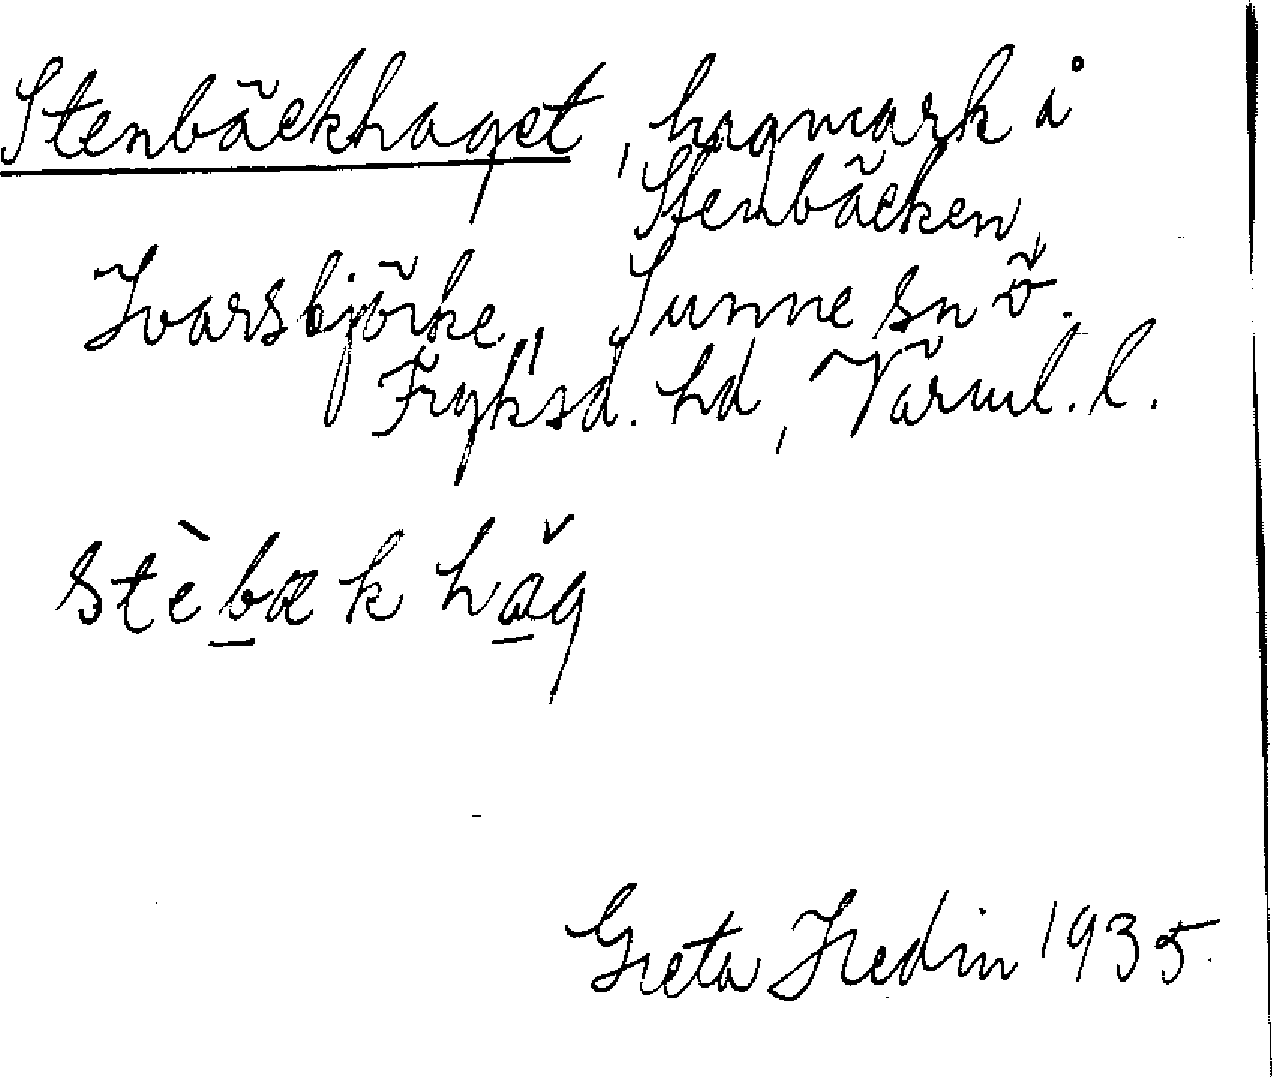 Stenbäckhaget, hagmark å
Stenbäcken,
Ivarsbjörke, Sunne sn ö.
Fryksd. hd, Värml. l.
stèbækhăg
Greta Hedin 1935.